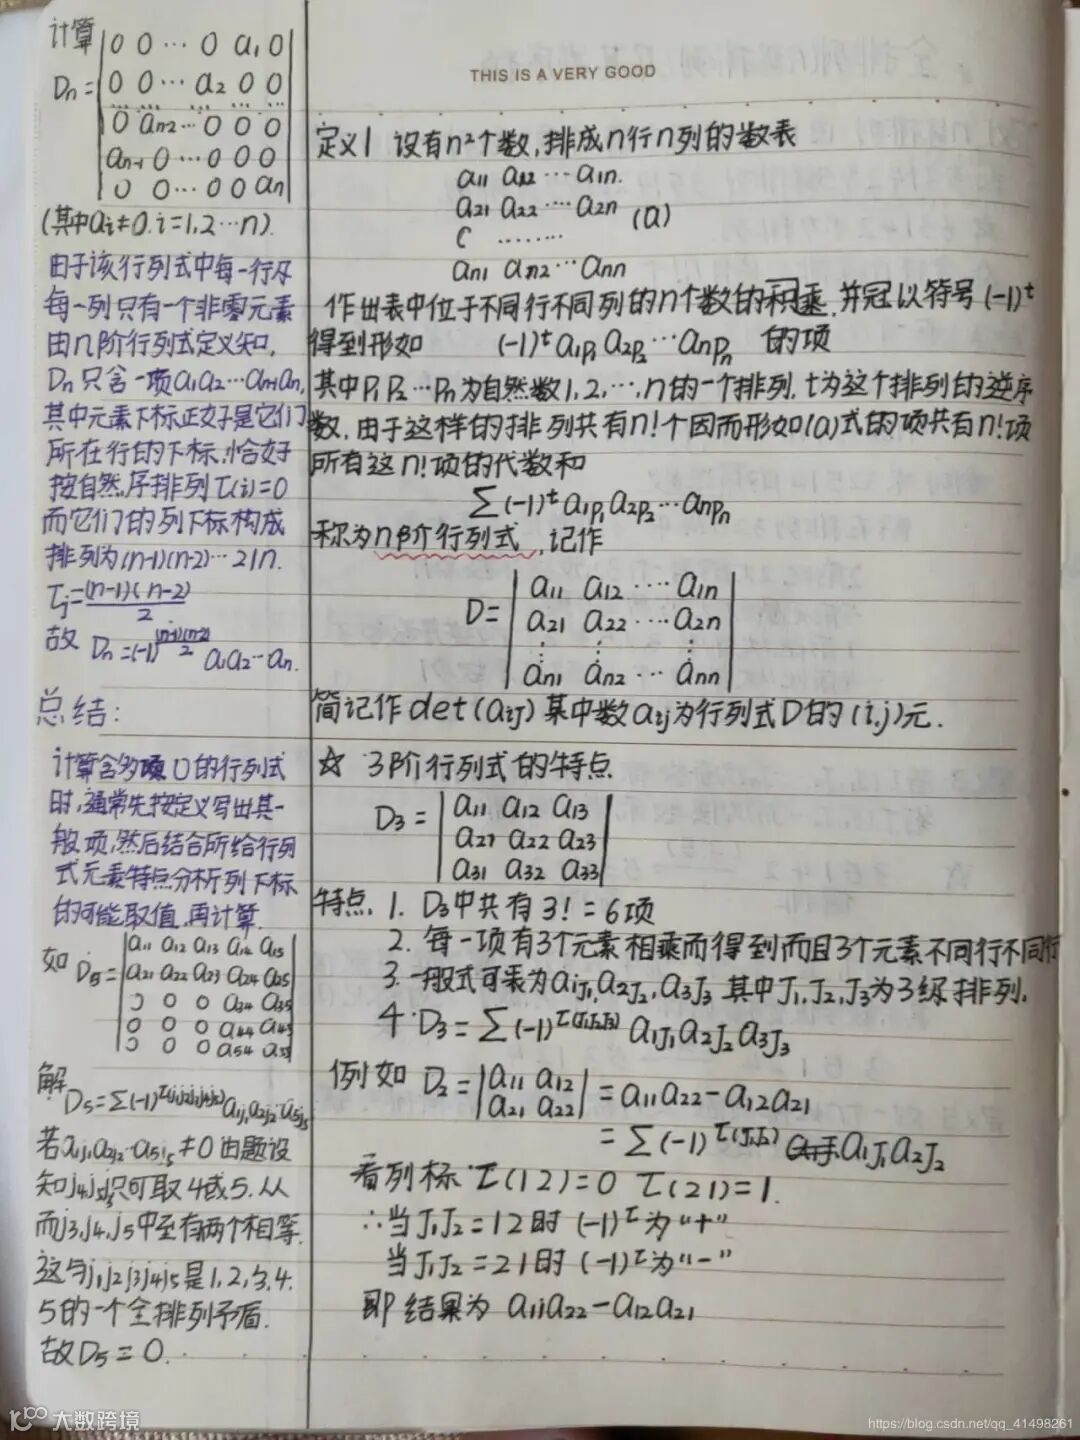 计算
Dn =
0 0 ⋯ 0 a₁ 0
0 0 ⋯ a₂ 0 0
⋯ ⋯ ⋯ ⋯
0 an-2 ⋯ 0 0 0
an-1 0 ⋯ 0 0 0
0 0 ⋯ 0 0 an
(其中ai≠0.i=1,2⋯n).
由于该行列式中每一行及
每一列只有一个非零元素
由n阶行列式定义知,
Dn只含一项a₁a₂⋯an-1an,
其中元素下标正好是它们
所在行的下标.恰好
按自然序排列τ(i)=0
而它们的列下标构成
排列为(n-1)(n-2)⋯21n.
τj=(n-1)(n-2)/2
故 Dn=(-1)^((n-1)(n-2)/2) a₁a₂⋯an.
总结:
计算含多项0的行列式
时,通常先按定义写出其一
般项,然后结合所给行列
式元素特点分析列下标
的可能取值,再计算.
如 D5=
a11 a12 a13 a14 a15
a21 a22 a23 a24 a25
0 0 0 a34 a35
0 0 0 a44 a45
0 0 0 a54 a55
解
D5=Σ(-1)^τ(j1j2j3j4j5) a1j1a2j2⋯a5j5
若a1j1a2j2⋯a5j5≠0由题设
只可取4或5.从
而j3,j4,j5中至有两个相等.
这与j1j2j3j4j5是1,2,3,4.
5的一个全排列矛盾.
故D5=0.
THIS IS A VERY GOOD
定义1 设有n²个数,排成n行n列的数表
a11 a12 ⋯ a1n.
a21 a22 ⋯ a2n (a)
⋯⋯⋯
an1 an2 ⋯ ann
作出表中位于不同行不同列的n个数的积乘,并冠以符号(-1)^t
得到形如 (-1)^t a1p1 a2p2 ⋯ anpn 的项
其中P1P2⋯Pn为自然数1,2,⋯,n的一个排列,t为这个排列的逆序
数,由于这样的排列共有n!个因而形如(a)式的项共有n!项
所有这n!项的代数和
Σ(-1)^t a1p1 a2p2 ⋯ anpn
称为n阶行列式,记作
D=
a11 a12 ⋯ a1n
a21 a22 ⋯ a2n
⋮ ⋮ ⋮
an1 an2 ⋯ ann
简记作det(aij)其中数aij为行列式D的(i,j)元.
☆ 3阶行列式的特点
D3 =
a11 a12 a13
a21 a22 a23
a31 a32 a33
特点. 1. D3中共有3!=6项
2. 每一项有3个元素相乘而得到而且3个元素不同行不同行
3. 一般式可表为a1J1,a2J2,a3J3 其中J1,J2,J3为3级排列.
4. D3=Σ(-1)^τ(J1J2J3) a1J1a2J2a3J3
例如 D2=|a11 a12 a21 a22|=a11a22-a12a21
=Σ(-1)^τ(J1J2) a1J1a2J2
看列标τ(12)=0 τ(21)=1.
∴当J1J2=12时(-1)^τ为“+”
当J1J2=21时(-1)^τ为“-”
即结果为 a11a22-a12a21
大数跨境
https://blog.csdn.net/qq_41498261